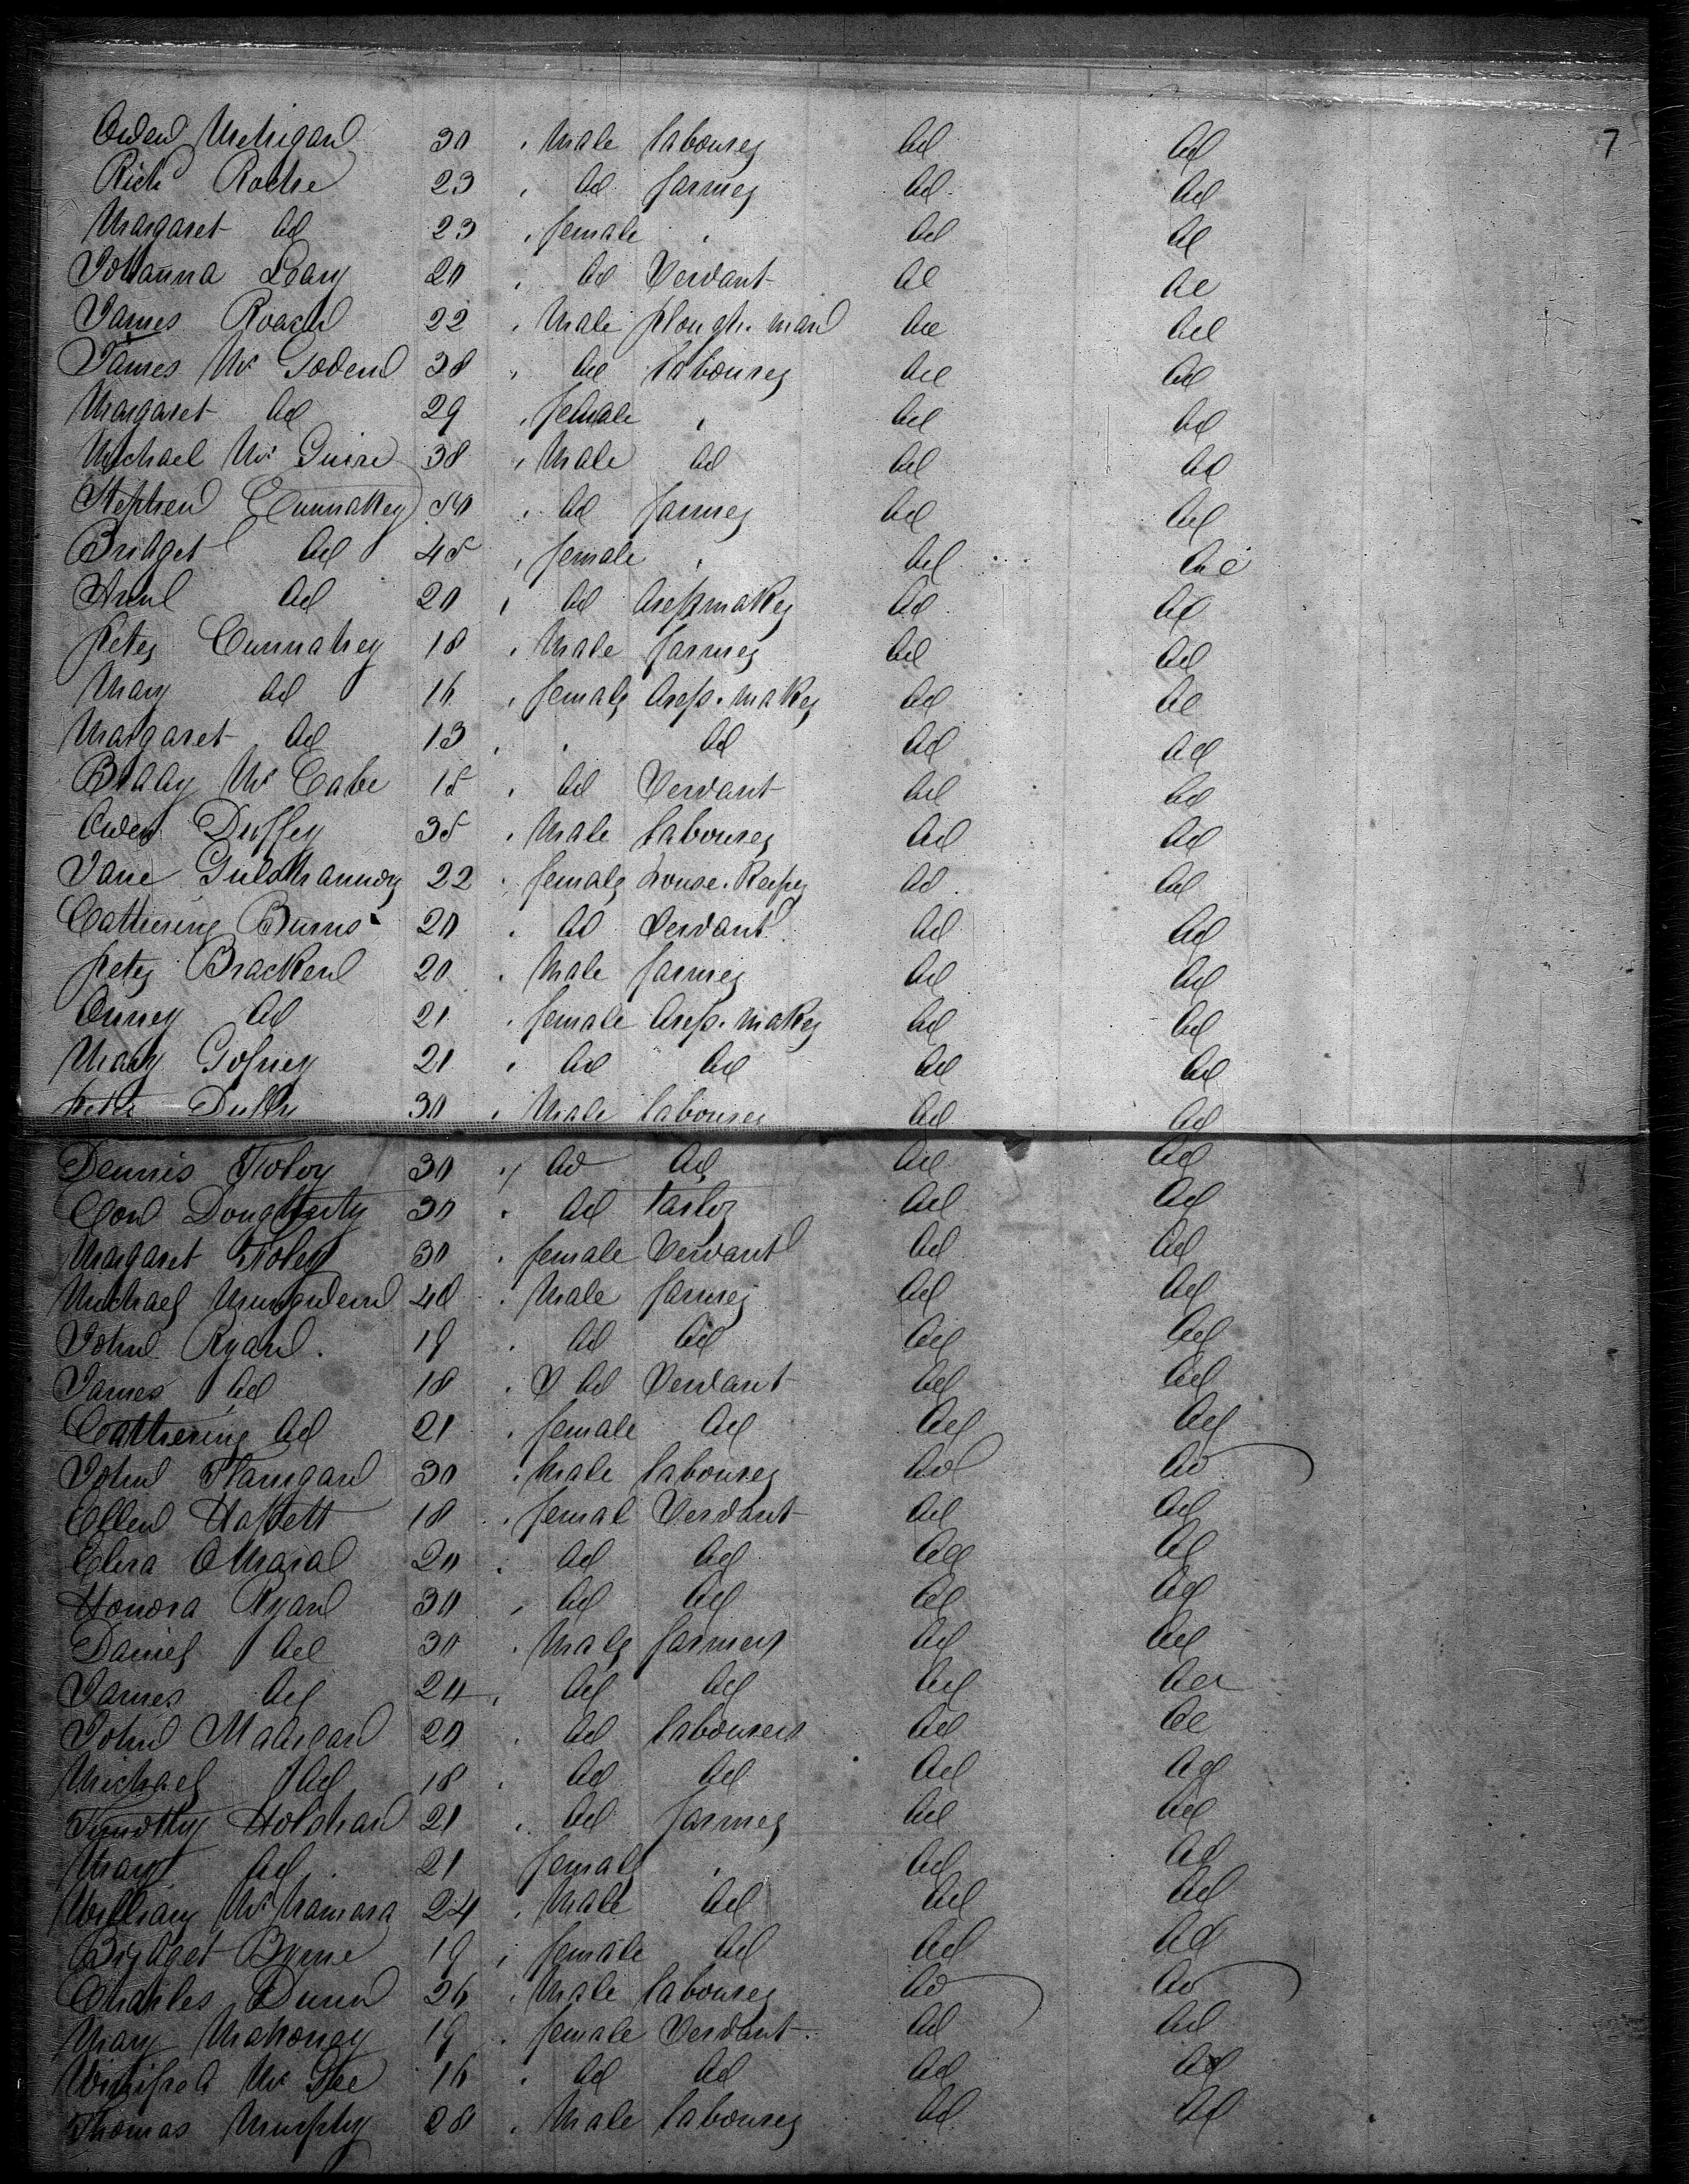 7
Owen Mehigan 30 , Male labourer do do
Richd Roche 23 , do farmer do do
Margaret do 23 , female , do do
Johanna Leary 20 , do Servant do do
James Roach 22 , Male plough. man do do
James Mc Godern 38 , do labourer do do
Margaret do 29 , female , do do
Michael Mc Guire 38 , Male do do do
Stephen Cunnahey 50 , do farmer do do
Bridget do 45 , female , do do
Ann do 20 , do dressmaker do do
peter Cunnahey 18 , Male farmer do do
Mary do 16 , female dress. maker do do
Margaret do 13 , , do do do
Biddy Mc Cabe 15 , do Servant do do
Owen Duffey 35 , Male labourer do do
Jane 22 , female house. Keeper do do
Catherine Burns 20 , do Servant do do
peter Bracken 20 , Male farmer do do
Anney do 21 , female dress. maker do do
Mary Gofney 21 , do do do do
30 , Male labourer do do
Dennis Foloy 30 , do do do do
Con Dougherty 30 , do tailor do do
Margaret Foley 30 , female Servant do do
Michael 40 , Male farmer do do
John Ryan . 19 , do do do do
James do 18 , do Servant do do
Catherine do 21 , female do do do
John Flanigan 30 , Male labourer do do
Ellen Hassett 18 , femal Servant do do
Eliza OMara 20 , do do do do
Honora Ryan 30 , do do do do
Daniel do 30 , Male farmer do do
James do 20 , do do do do
John Madigan 20 , do labourer do do
Michael do 18 , do do do do
Timothy Holohan 21 , do farmer do do
Mary do 21 female , do do
William Mc Namara 24 , Male do do do
Bridget Byrne 19 , female do do do
Charles Dunn 26 , Male labourer do do
Mary Mahoney 19 , female Servant do do
Winifred Mc Gee 16 , do do do do
Thomas Murphy 28 , Male labourer do do